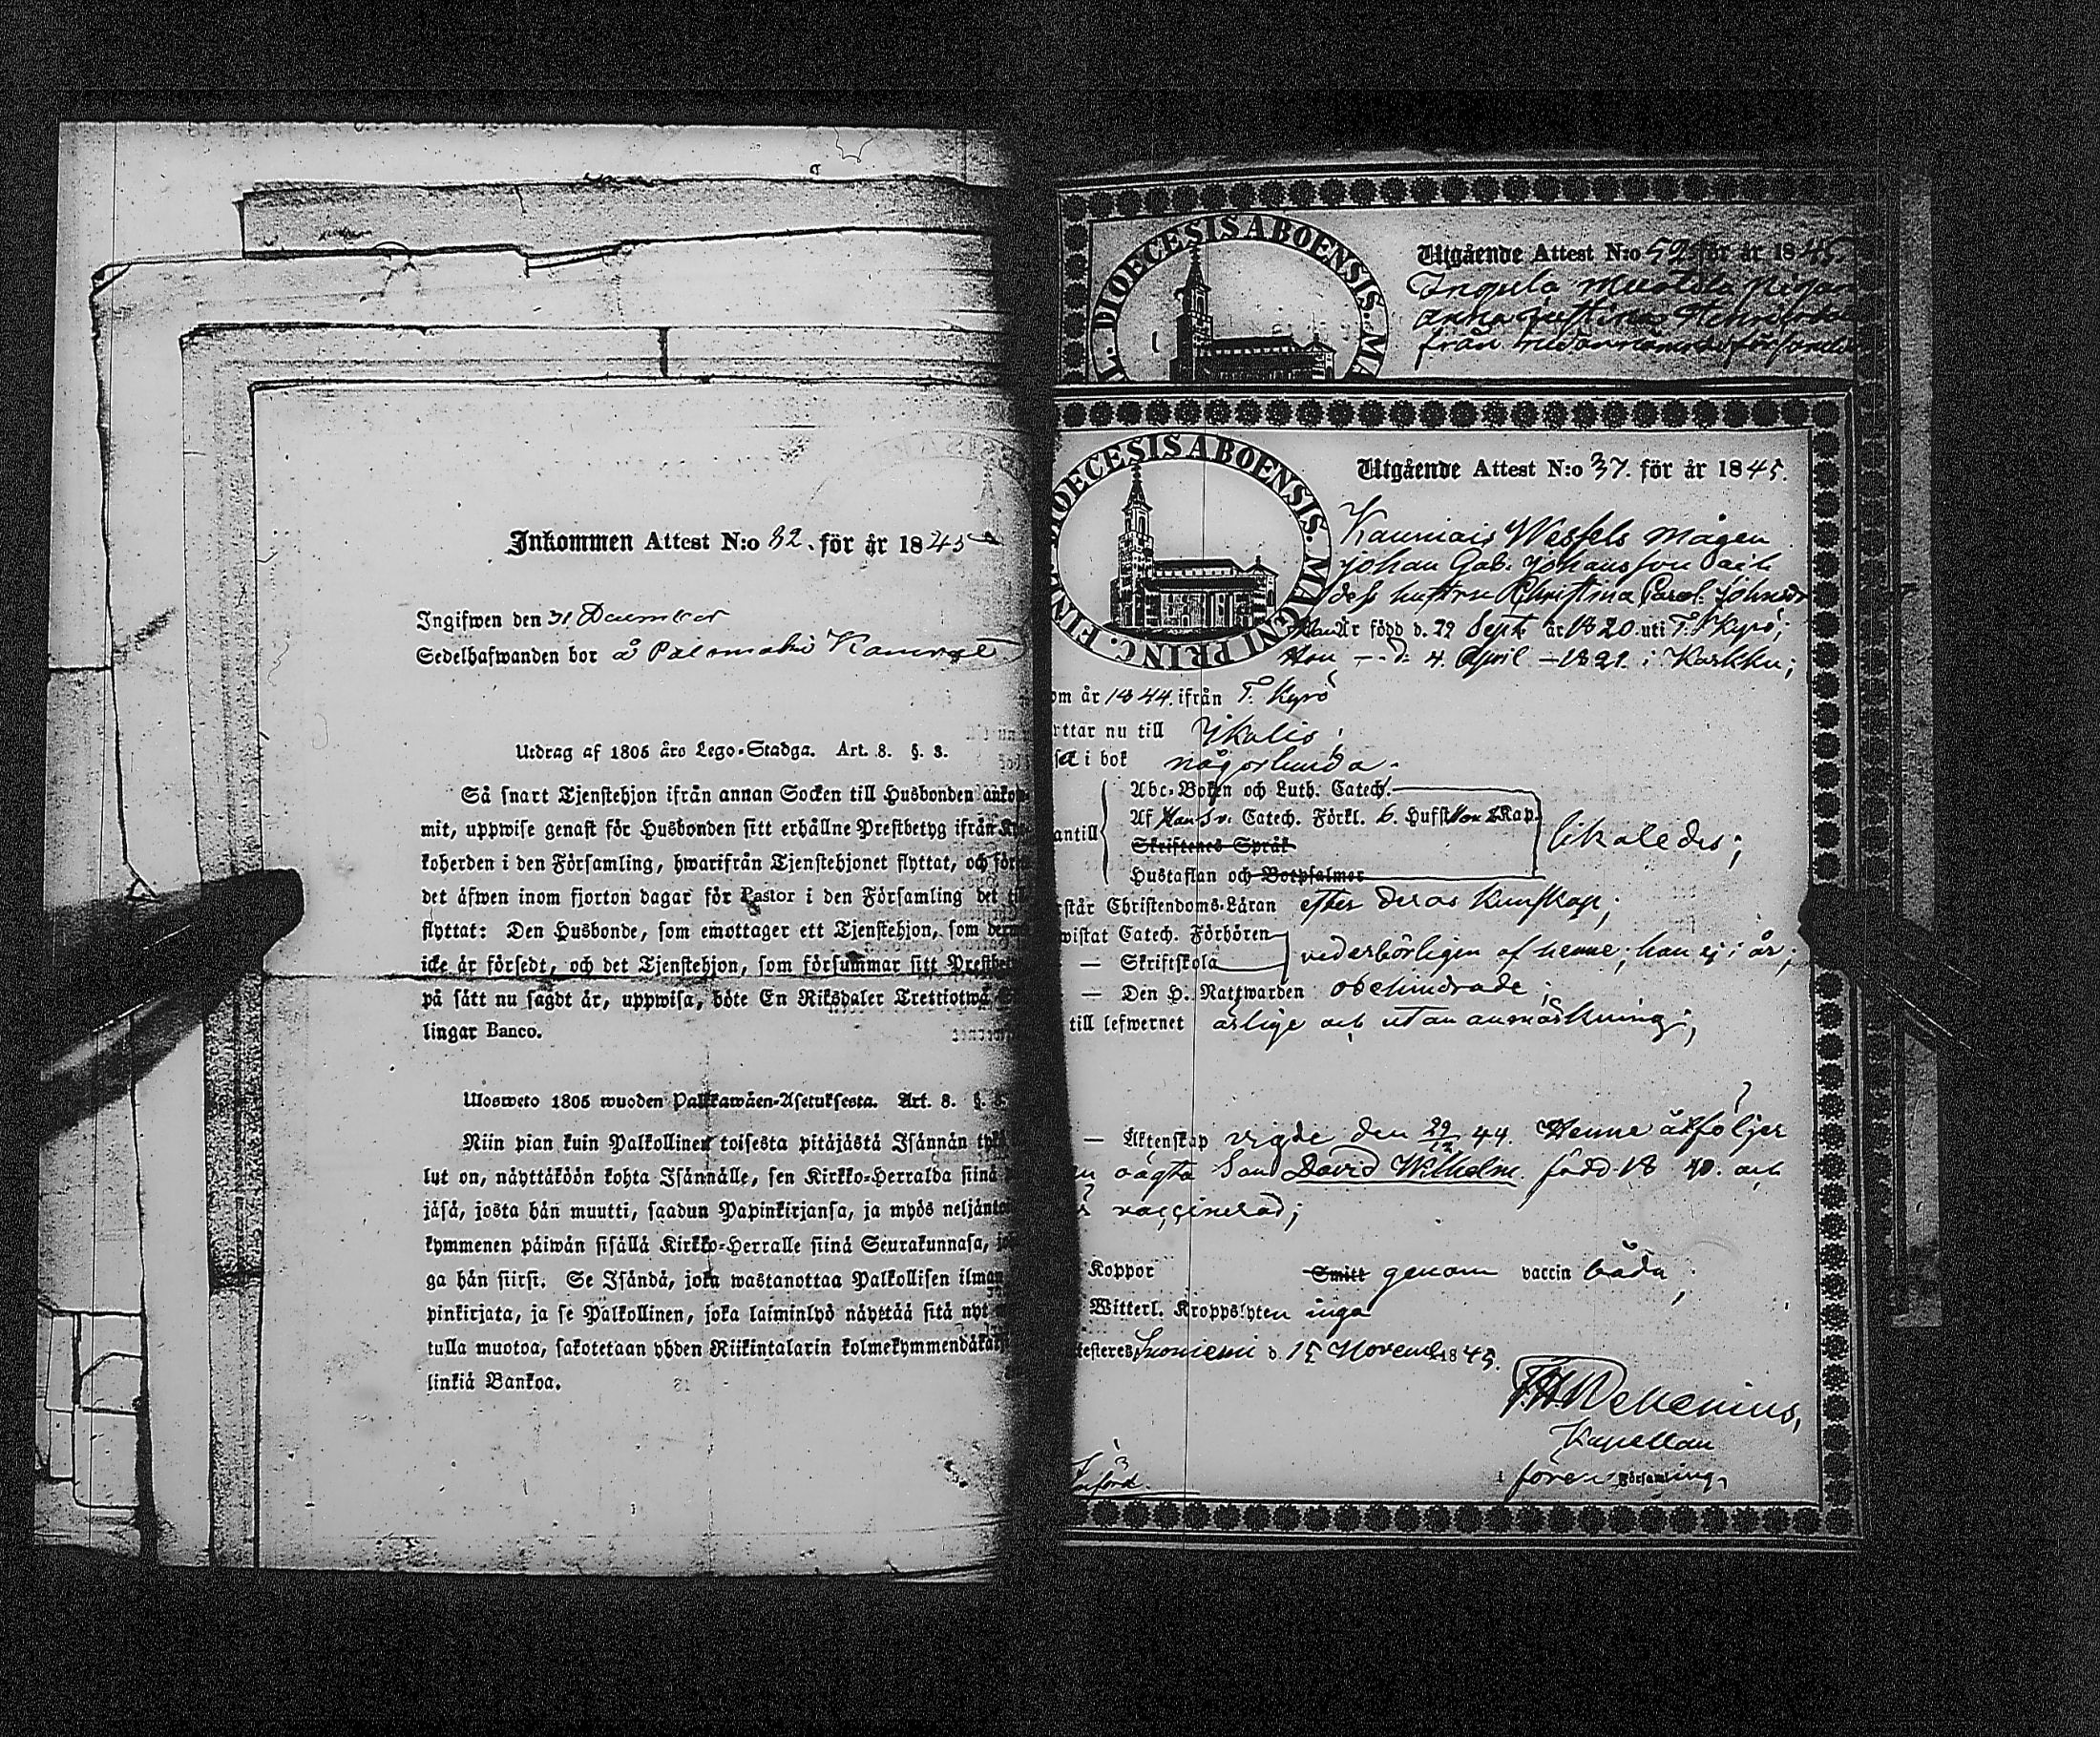 Inkommen Attest N:o 82. för år 1845
Ingifwen den 31 December
Sedelhafwanden bor å Palomaki
Utdrag af 1805 års Lego-Stadga. Art. 8. §. 3.
Så snart Tjenstehjon ifrån annan Socken till Husbonden anko
mit, uppwise genast för Husbonden sitt erhållne Prestbetyg ifrån
koherden i den Församling, hwarifrån Tjenstehjonet flyttat, och
det äfwen inom fjorton dagar för Pastor i den Församling det
flyttat: Den Husbonde, som emottager ett Tjenstehjon, som
icke är försedt, och det Tjenstehjon, som försummar sitt Prestbet
på sätt nu sagdt är, uppwisa, böte En Riksdaler Trettiotwå
lingar Banco.
Ulosweto 1805 wuoden Palkkawäen-Asetuksesta. Art. 8. §.
Niin pian kuin Palkollinen toisesta pitäjästä Isännän
lut on, näyttäköön kohta Isännälle, sen Kirkko-Herralda siinä
jäsä, josta hän muutti, saadun Papinkirjansa, ja myös neljänto
kymmenen päiwän sisällä Kirkko-Herralle siinä Seurakunnasa,
ga hän siirsi. Se Isändä, joka wastanottaa Palkollisen ilman
pinkirjata, ja se Palkollinen, joka laiminlyö näyttää sitä nyt
tulla muotoa, sakotetaan yhden Riikintalarin kolmekymmendäkaksi
linkiä Bankoa.
DIOECESIS ABOENSIS. MA
Utgående Attest N:o 52 för år 1845.
från
DIOECESIS ABOENSIS. MAGNI PRINC. FIN
Utgående Attest N:o 37. för år 1845.
Wessels mågen
Johan Gab. Johansson och
dess hustru Christina Carol. Johansdr
Han Är född d. 29 Sept. år 1820. uti T. Kyrö;
Hon — d. 4 April — 1821. i Karkku;
om år 1844. ifrån T. Kyrö
ttar nu till Ikalis;
sa i bok någorlunda.
Abc-Boken och Luth. Catech.
Af Han Sv. Catech. Förkl. 6. Hufst Hon 2 Kap.
antill
Skriftenes Språk
likaledes;
Hustaflan och Botpsalmer
står Christendoms-Läran efter deras kunskap;
wistat Catech. Förhören
— Skriftskola
vederbörligen af henne; han ej i år;
— Den H. Nattwarden obehindrade;
till lefwernet ärlige och utan anmärkning;
— Äktenskap vigde den 29/12 44. Henne åtföljer
oägta Son David Wilhelm. född 18 40. och
vaccinerad;
Koppor Smitt genom vaccin båda;
Witterl. Kroppslyten inga
testeres Suoniemi d. 15 Novemb 1845.
Kapellan
i fören. Församling.